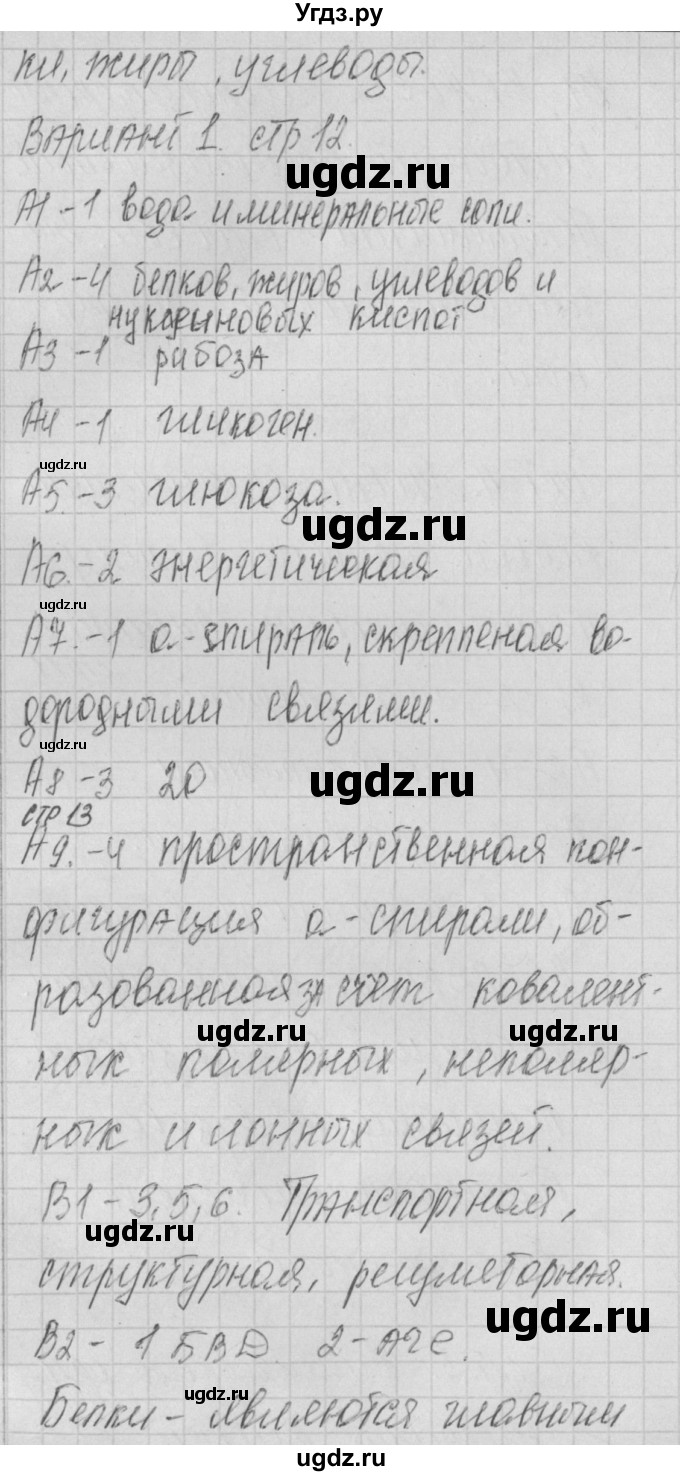 Угдз.ру
ки, жиры, углеводы.
Вариант 1. стр 12.
ugdz.ru
А1 - 1 вода и минеральные соли.
А2 - 4 белков, жиров, углеводов и
нуклеиновых кислот
А3 - 1 рибоза
А4 - 1 гликоген.
ugdz.ru
А5. - 3 глюкоза.
ugdz.ru
А6. - 2 энергетическая
ugdz.ru
А7. - 1 а - спираль, скрепленая во-
дородными связями.
ugdz.ru
А8 - 3 20
ugdz.ru
стр 13
А9. - 4 пространственная кон-
фигурация а - спирали, об-
разованная за счет ковалент-
ugdz.ru ugdz.ru
ных полярных, неполяр-
ных и ионных связей.
В1 - 3, 5, 6. Транспортная,
ugdz.ru
структурная, регуляторная.
ugdz.ru
В2 - 1 БВД. 2 - АГЕ.
ugdz.ru
Белки - являются главным
ugdz.ru